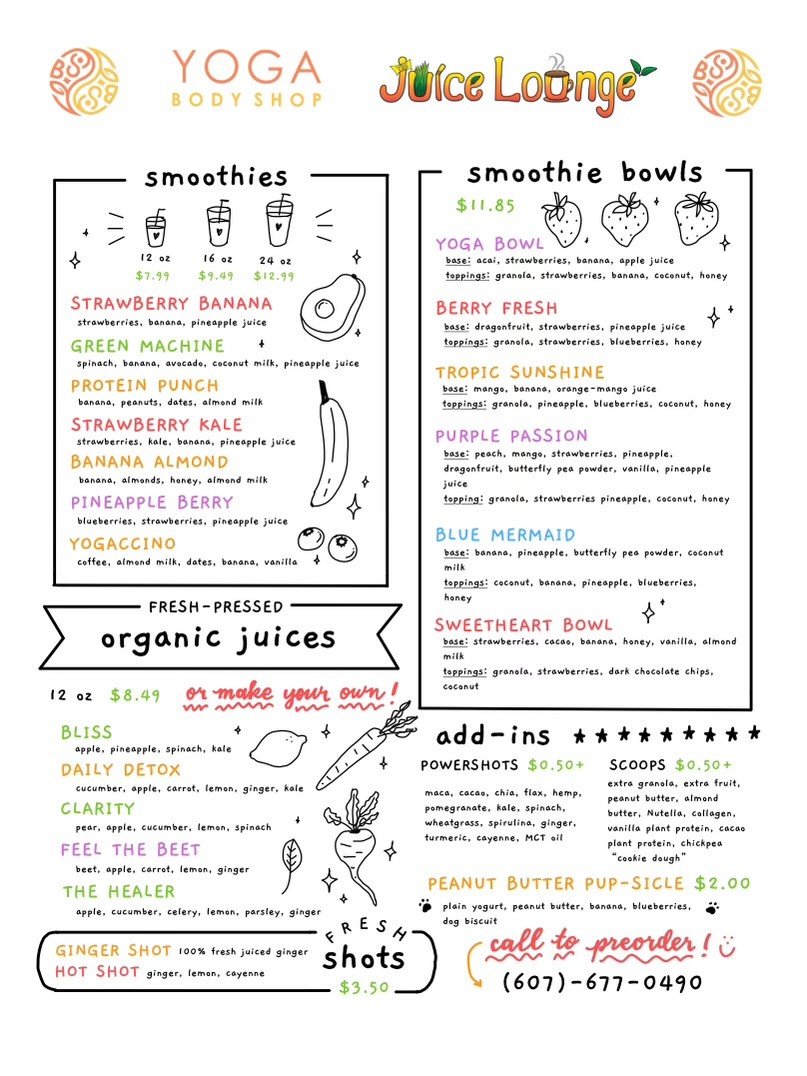 YOGA
BODY SHOP
Juice Lounge
smoothies
12 oz 16 oz 24 oz
$7.99 $9.49 $12.99
STRAWBERRY BANANA
strawberries, banana, pineapple juice
GREEN MACHINE
spinach, banana, avocado, coconut milk, pineapple juice
PROTEIN PUNCH
banana, peanuts, dates, almond milk
STRAWBERRY KALE
strawberries, kale, banana, pineapple juice
BANANA ALMOND
banana, almonds, honey, almond milk
PINEAPPLE BERRY
blueberries, strawberries, pineapple juice
YOGACCINO
coffee, almond milk, dates, banana, vanilla
FRESH-PRESSED
organic juices
12 oz $8.49 or make your own!
BLISS
apple, pineapple, spinach, kale
DAILY DETOX
cucumber, apple, carrot, lemon, ginger, kale
CLARITY
pear, apple, cucumber, lemon, spinach
FEEL THE BEET
beet, apple, carrot, lemon, ginger
THE HEALER
apple, cucumber, celery, lemon, parsley, ginger
FRESH
shots
$3.50
GINGER SHOT 100% fresh juiced ginger
HOT SHOT ginger, lemon, cayenne
smoothie bowls
$11.85
YOGA BOWL
base: acai, strawberries, banana, apple juice
toppings: granola, strawberries, banana, coconut, honey
BERRY FRESH
base: dragonfruit, strawberries, pineapple juice
toppings: granola, strawberries, blueberries, honey
TROPIC SUNSHINE
base: mango, banana, orange-mango juice
toppings: granola, pineapple, blueberries, coconut, honey
PURPLE PASSION
base: peach, mango, strawberries, pineapple,
dragonfruit, butterfly pea powder, vanilla, pineapple
juice
topping: granola, strawberries pineapple, coconut, honey
BLUE MERMAID
base: banana, pineapple, butterfly pea powder, coconut
milk
toppings: coconut, banana, pineapple, blueberries,
honey
SWEETHEART BOWL
base: strawberries, cacao, banana, honey, vanilla, almond
milk
toppings: granola, strawberries, dark chocolate chips,
coconut
add-ins
POWERSHOTS $0.50+
maca, cacao, chia, flax, hemp,
pomegranate, kale, spinach,
wheatgrass, spirulina, ginger,
turmeric, cayenne, MCT oil
SCOOPS $0.50+
extra granola, extra fruit,
peanut butter, almond
butter, Nutella, collagen,
vanilla plant protein, cacao
plant protein, chickpea
"cookie dough"
PEANUT BUTTER PUP-SICLE $2.00
plain yogurt, peanut butter, banana, blueberries,
dog biscuit
call to preorder!
(607)-677-0490